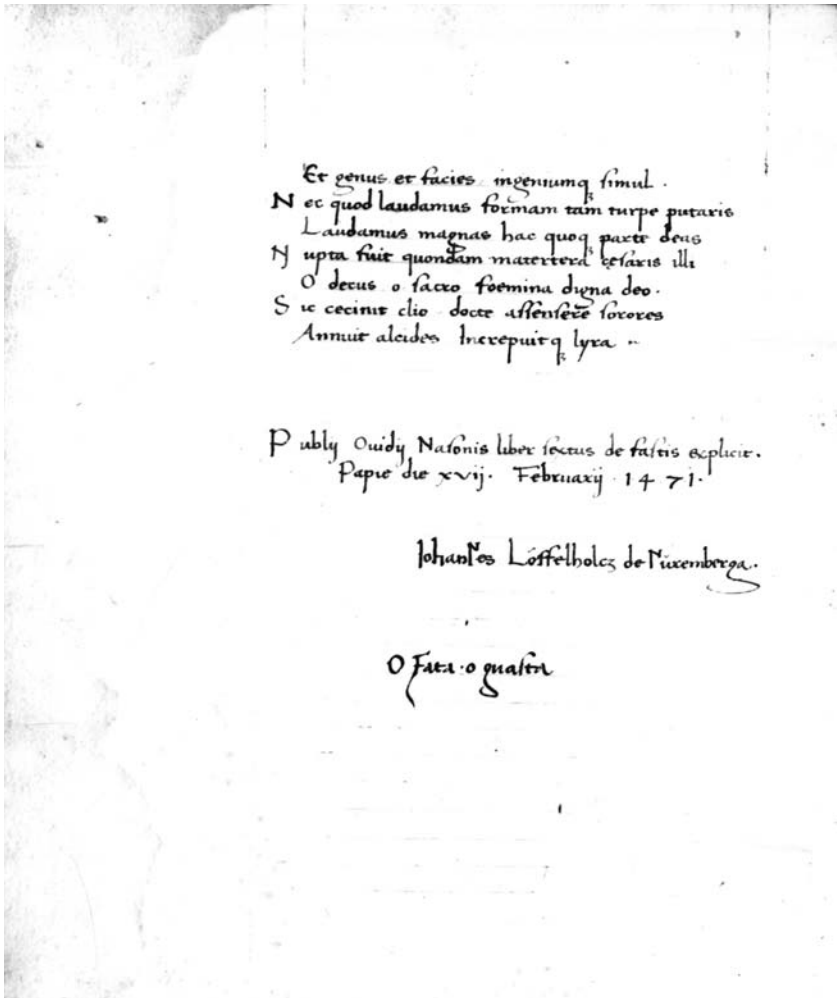 Et genus et facies ingeniumq simul .
Nec quod laudamus formam tam turpe putaris
Laudamus magnas hac quoq parte deas
Nupta fuit quondam matertera cesaris illi
O decus o sacro foemina digna deo .
Sic cecinit clio docte assensere sorores
Annuit alcides Increpuitq lyra ..
Publij Ouidij Nasonis liber sextus de fastis explicit .
Papie die xvij . Februarij . 1471 .
Johannes Löffelholcz de Nüremberga .
O Fata . o